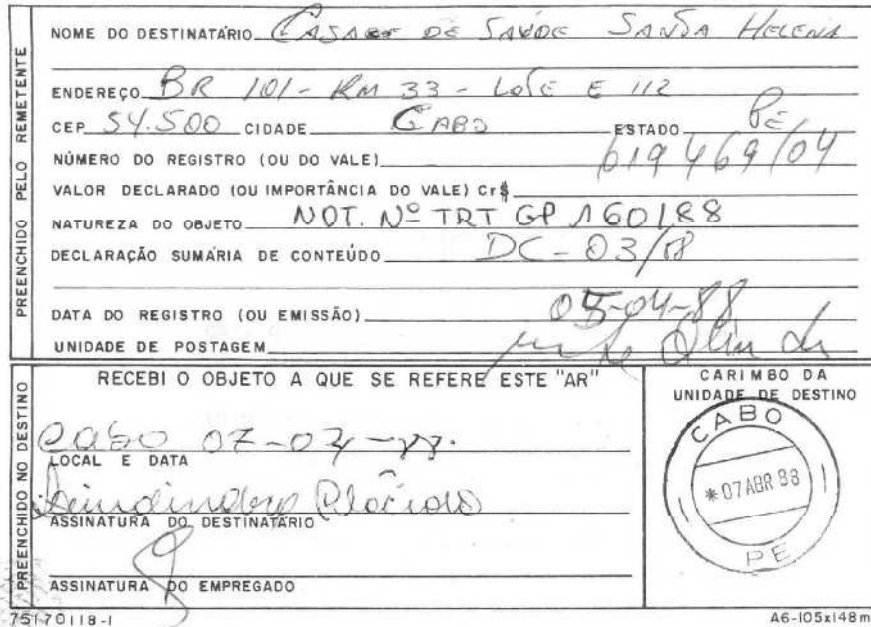 PREENCHIDO PELO REMETENTE
NOME DO DESTINATÁRIO DE SAÚDE SANTA HELENA
ENDEREÇO BR 101 - KM 33 - LOTE E 112
CEP 54.500 CIDADE CABO ESTADO PE
NÚMERO DO REGISTRO (OU DO VALE) 619469/04
VALOR DECLARADO (OU IMPORTÂNCIA DO VALE) Cr$
NATUREZA DO OBJETO NOT. Nº TRT GP 160/88
DECLARAÇÃO SUMÁRIA DE CONTEÚDO DC-03/88
DATA DO REGISTRO (OU EMISSÃO) 05-04-88
UNIDADE DE POSTAGEM
PREENCHIDO NO DESTINO
RECEBI O OBJETO A QUE SE REFERE ESTE "AR"
Cabo
LOCAL E DATA
ASSINATURA DO DESTINATÁRIO
ASSINATURA DO EMPREGADO
CARIMBO DA
UNIDADE DE DESTINO
CABO
*07 ABR 88
PE
75170118-1
A6-105x148m